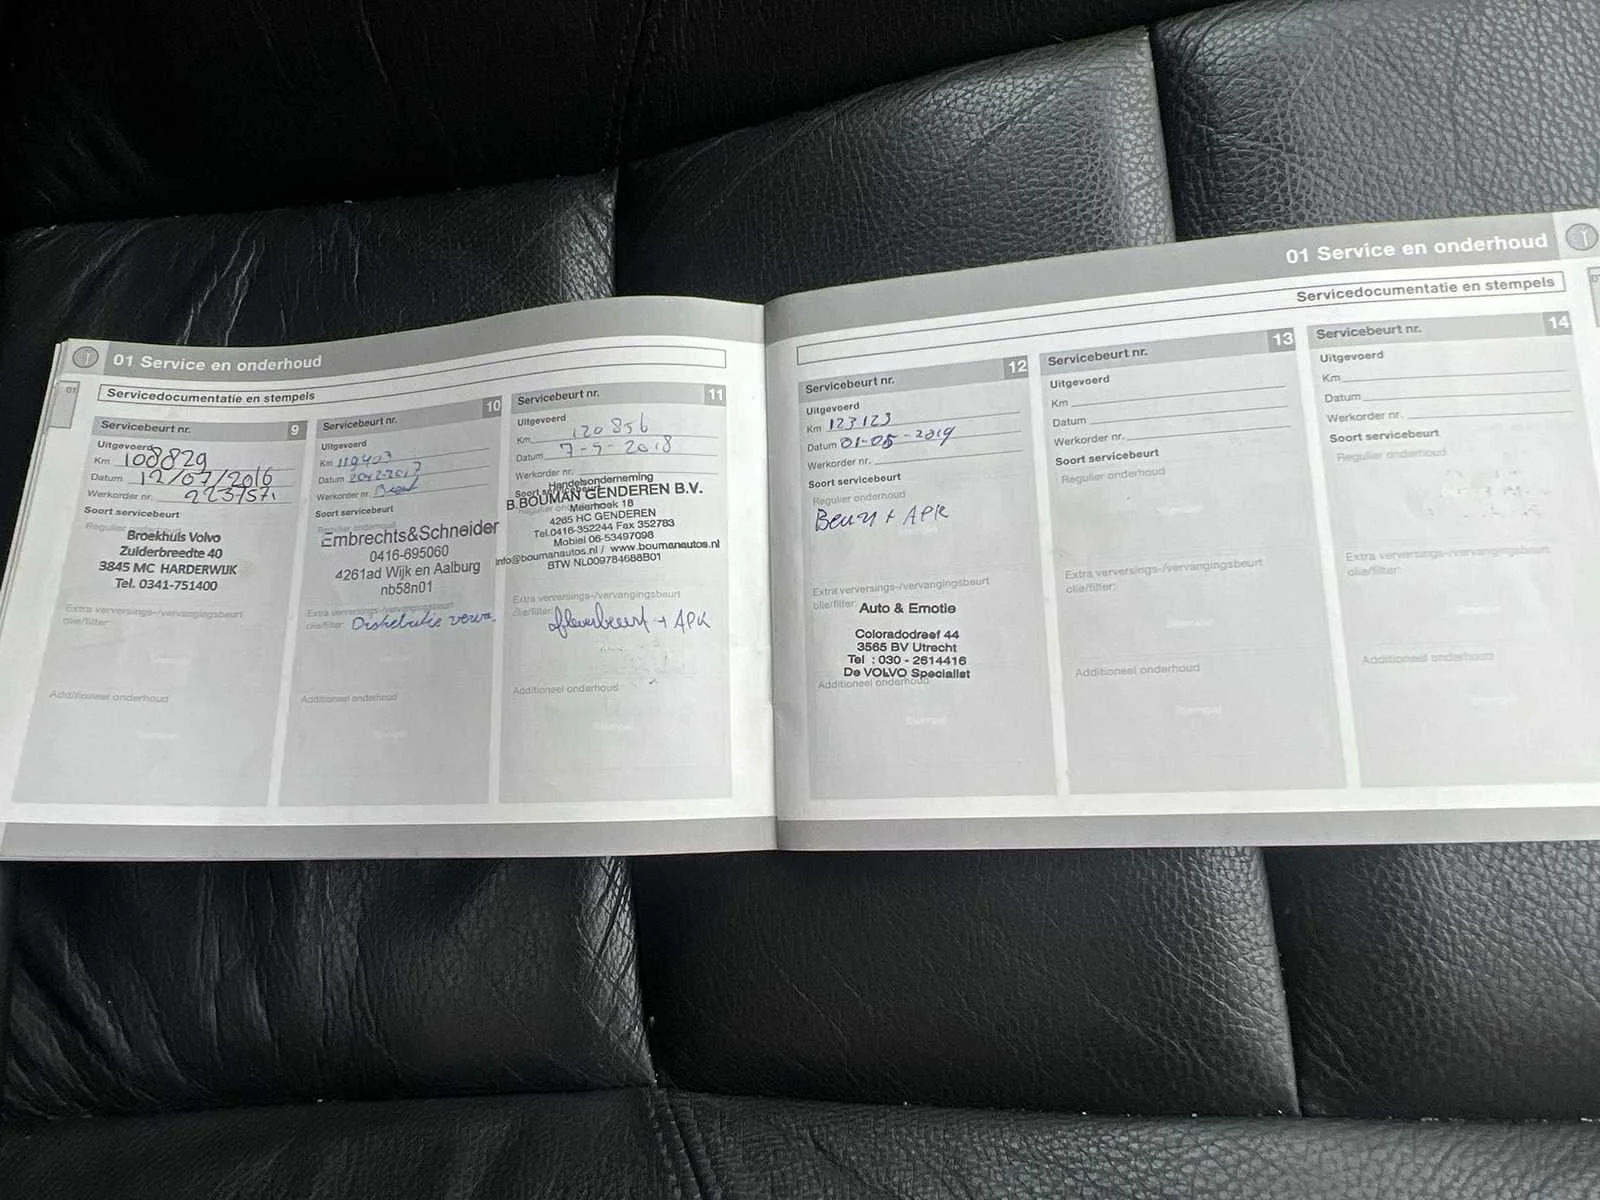 01 Service en onderhoud
Servicedocumentatie en stempels
Servicebeurt nr. 9
Uitgevoerd
Km 108829
Datum 12/07/2016
Werkorder nr. 223757
Soort servicebeurt
Regulier onderhoud
Broekhuis Volvo
Zuiderbreedte 40
3845 MC HARDERWIJK
Tel. 0341-751400
Extra verversings-/vervangingsbeurt
olie/filter:
Additioneel onderhoud
Servicebeurt nr. 10
Uitgevoerd
Km 119403
Datum
Werkorder nr.
Soort servicebeurt
Regulier onderhoud
Embrechts&Schneider
0416-695060
4261ad Wijk en Aalburg
nb58n01
Extra verversings-/vervangingsbeurt
olie/filter: Distributie verva.
Additioneel onderhoud
Servicebeurt nr. 11
Uitgevoerd
Km 120856
Datum 7-5-2018
Werkorder nr.
Handelsonderneming
Soort servicebeurt
B.BOUMAN GENDEREN B.V.
Meerhoek 18
4265 HC GENDEREN
Tel.0416-352244 Fax 352783
Mobiel 06-53497098
info@boumanautos.nl / www.boumanautos.nl
BTW NL009784688B01
Extra verversings-/vervangingsbeurt
olie/filter: afleverbeurt + APK
Additioneel onderhoud
01 Service en onderhoud
Servicedocumentatie en stempels
Servicebeurt nr. 12
Uitgevoerd
Km 123123
Datum 01-05-2019
Werkorder nr.
Soort servicebeurt
Regulier onderhoud
Beurt + APK
Extra verversings-/vervangingsbeurt
olie/filter:
Auto & Emotie
Coloradodreef 44
3565 BV Utrecht
Tel : 030 - 2614416
De VOLVO Specialist
Additioneel onderhoud
Stempel
Servicebeurt nr. 13
Uitgevoerd
Km
Datum
Werkorder nr.
Soort servicebeurt
Regulier onderhoud
Extra verversings-/vervangingsbeurt
olie/filter:
Stempel
Additioneel onderhoud
Stempel
Servicebeurt nr. 14
Uitgevoerd
Km
Datum
Werkorder nr.
Soort servicebeurt
Regulier onderhoud
Extra verversings-/vervangingsbeurt
olie/filter:
Stempel
Additioneel onderhoud
Stempel